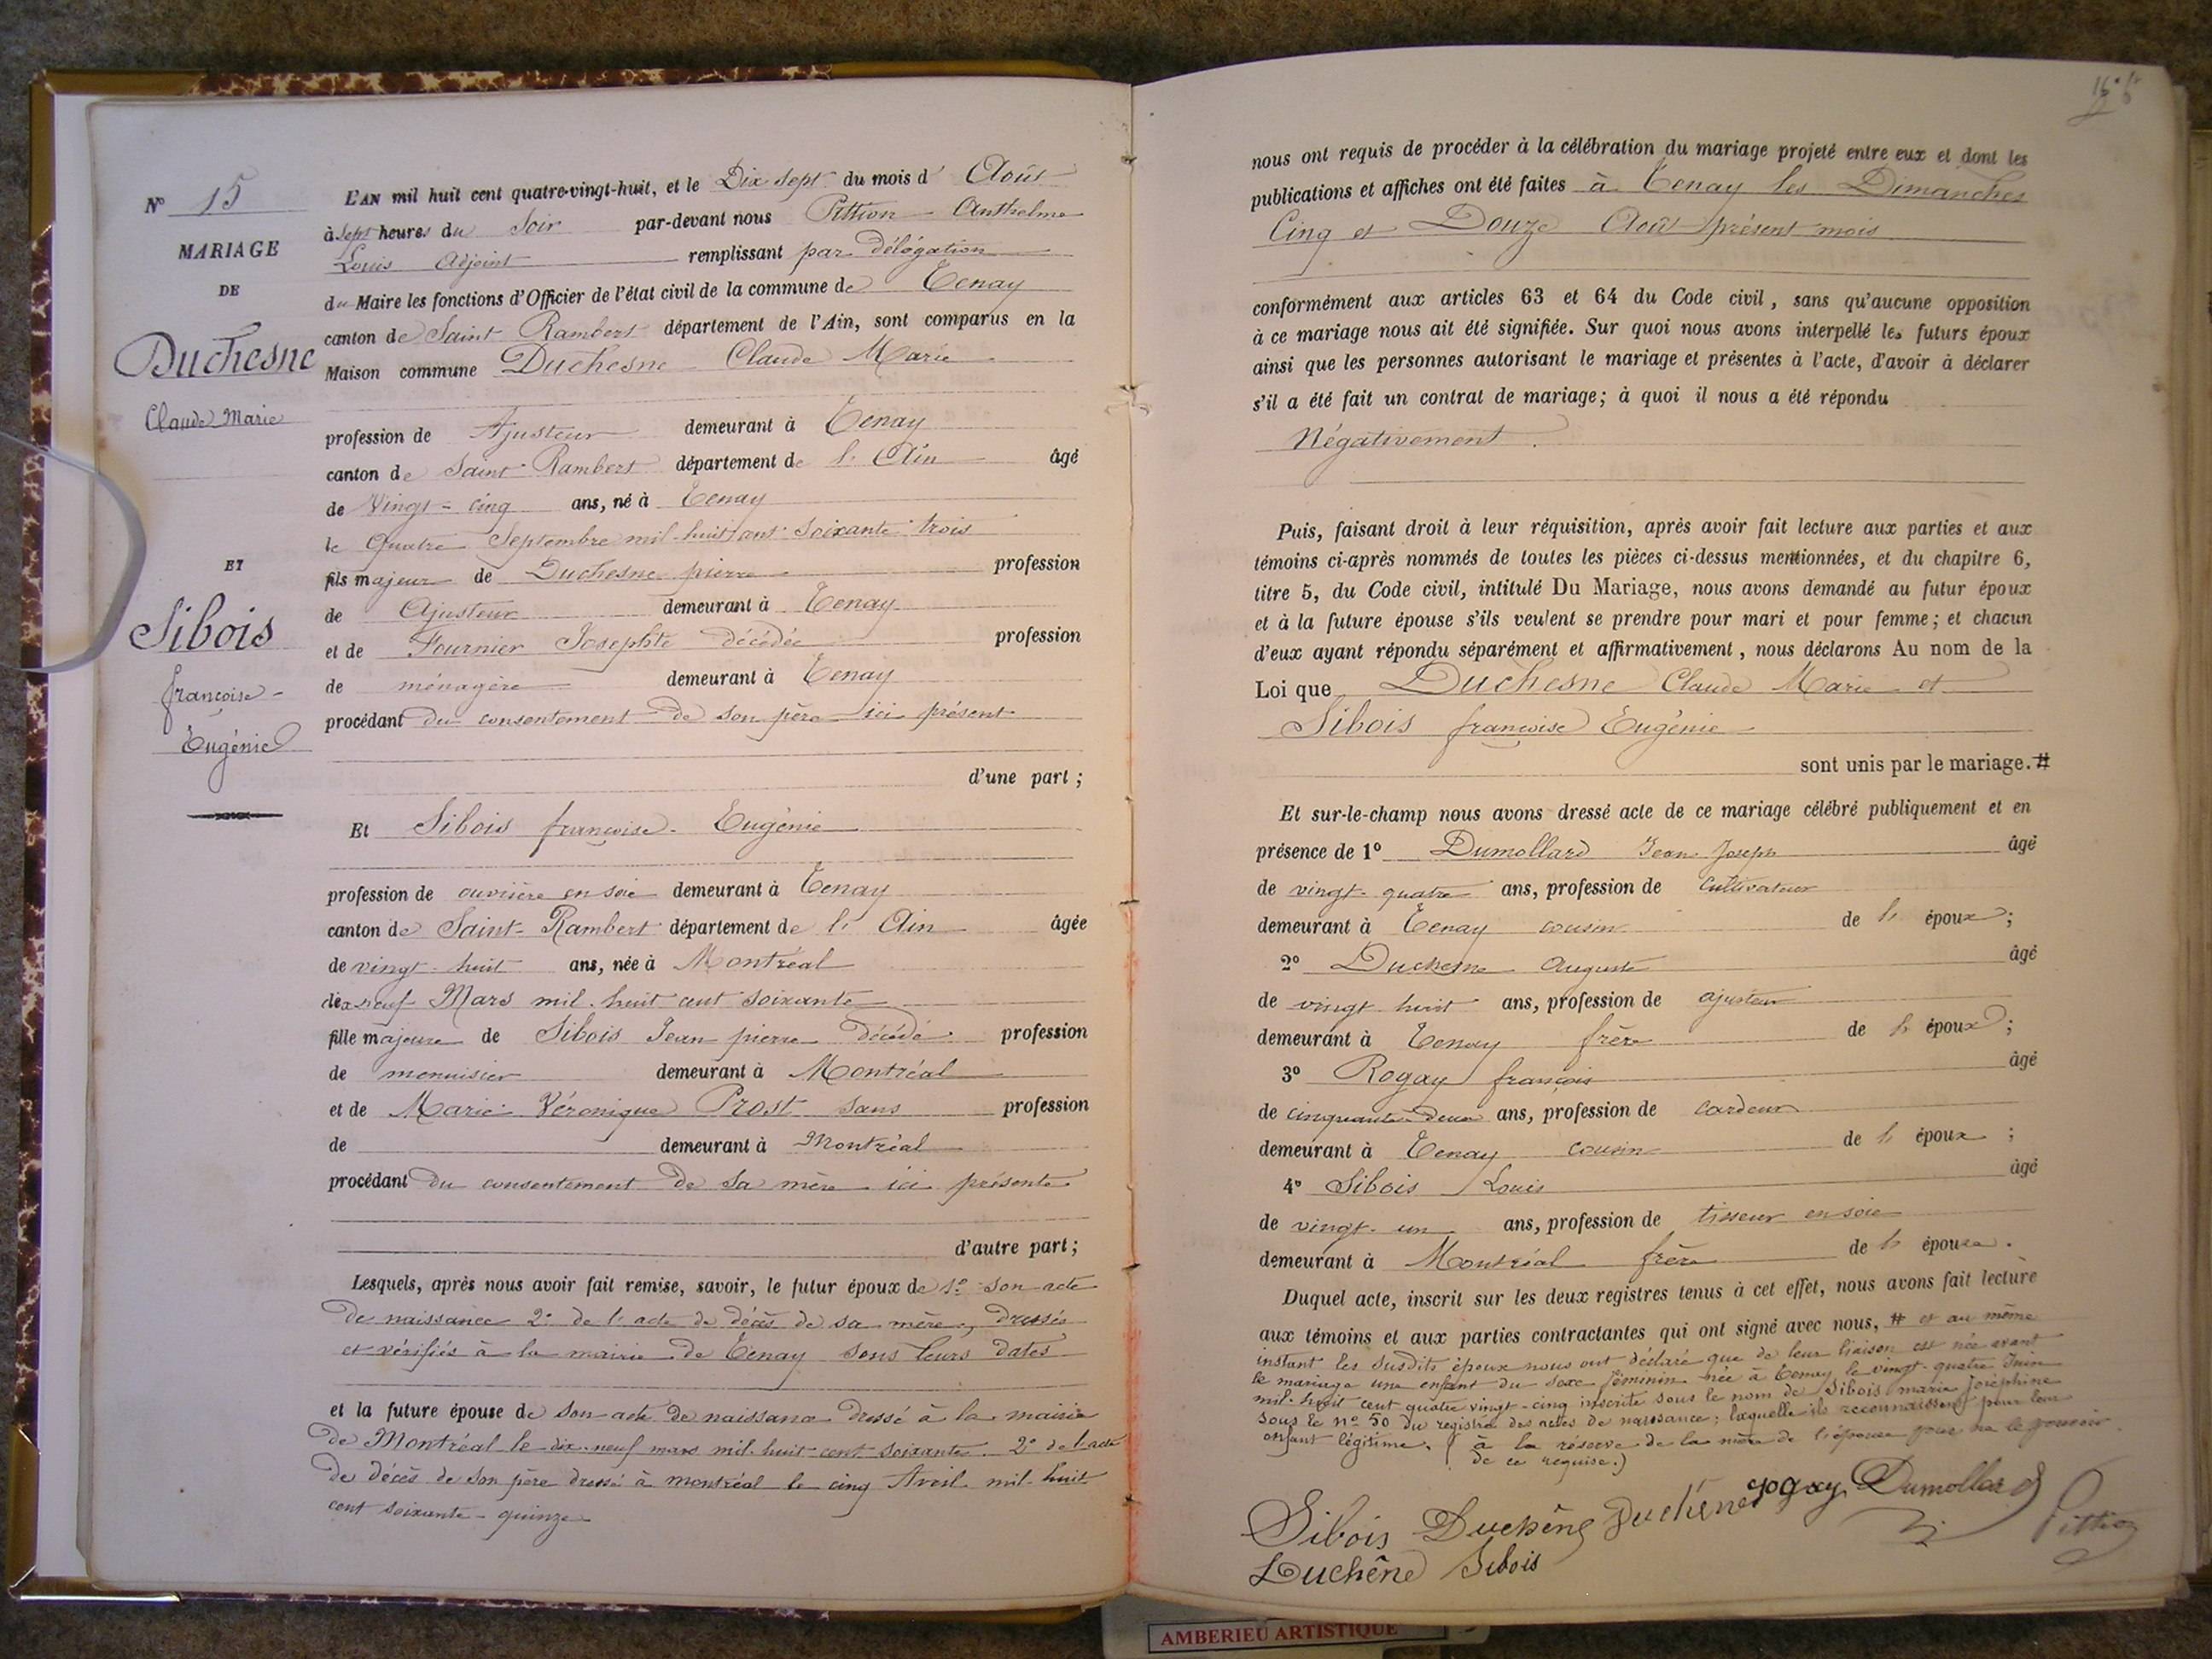 Nº 15
MARIAGE
DE
Duchesne
Claude Marie
ET
Sibois
françoise-
Eugénie
L'AN mil huit cent quatre-vingt-huit, et le Dix sept du mois d' Août
à sept heures du Soir par-devant nous Pittion Anthelme
Louis Adjoint remplissant par délégation
du Maire les fonctions d'Officier de l'état civil de la commune de Tenay
canton de Saint Rambert département de l'Ain, sont comparus en la
Maison commune Duchesne Claude Marie
profession de Ajusteur demeurant à Tenay
canton de Saint Rambert département de l' Ain âgé
de Vingt-cinq ans, né à Tenay
le Quatre Septembre mil-huit cent soixante trois
fils majeur de Duchesne pierre profession
de Ajusteur demeurant à Tenay
et de Fournier Josephte décédée profession
de ménagère demeurant à Tenay
procédant du consentement de son père ici présent
d'une part ;
Et Sibois françoise-Eugénie
profession de ouvrière en soie demeurant à Tenay
canton de Saint-Rambert département de l' Ain âgée
de vingt-huit ans, née à Montréal
dix neuf Mars mil-huit cent soixante
fille majeure de Sibois Jean pierre décédé profession
de menuisier demeurant à Montréal
et de Marie Véronique Prost sans profession
de demeurant à Montréal
procédant du consentement de sa mère ici présente
d'autre part ;
Lesquels, après nous avoir fait remise, savoir, le futur époux de 1º son acte
de naissance 2º de l'acte de décès de sa mère, dressés
et vérifiés à la mairie de Tenay sous leurs dates
et la future épouse de son acte de naissance dressé à la mairie
de Montréal le dix-neuf mars mil-huit-cent soixante 2º de l'acte
de décès de son père dressé à montréal le cinq Avril mil-huit
cent soixante-quinze
nous ont requis de procéder à la célébration du mariage projeté entre eux et dont les
publications et affiches ont été faites à Tenay les Dimanches
Cinq et Douze Août présent mois
conformément aux articles 63 et 64 du Code civil, sans qu'aucune opposition
à ce mariage nous ait été signifiée. Sur quoi nous avons interpellé les futurs époux
ainsi que les personnes autorisant le mariage et présentes à l'acte, d'avoir à déclarer
s'il a été fait un contrat de mariage; à quoi il nous a été répondu
Négativement.
Puis, faisant droit à leur réquisition, après avoir fait lecture aux parties et aux
témoins ci-après nommés de toutes les pièces ci-dessus mentionnées, et du chapitre 6,
titre 5, du Code civil, intitulé Du Mariage, nous avons demandé au futur époux
et à la future épouse s'ils veulent se prendre pour mari et pour femme; et chacun
d'eux ayant répondu séparément et affirmativement, nous déclarons Au nom de la
Loi que Duchesne Claude Marie et
Sibois françoise Eugénie
sont unis par le mariage. #
Et sur-le-champ nous avons dressé acte de ce mariage célébré publiquement et en
présence de 1º Dumollard Jean Joseph âgé
de vingt-quatre ans, profession de cultivateur
demeurant à Tenay cousin de l' époux ;
2º Duchesne Auguste âgé
de vingt huit ans, profession de ajusteur
demeurant à Tenay frère de l' époux ;
3º Rogay françois âgé
de cinquante-deux ans, profession de cardeur
demeurant à Tenay cousin de l' époux ;
4º Sibois Louis âgé
de vingt-un ans, profession de tisseur en soie
demeurant à Montréal frère de l' épouse.
Duquel acte, inscrit sur les deux registres tenus à cet effet, nous avons fait lecture
aux témoins et aux parties contractantes qui ont signé avec nous, # et au même
instant les susdits époux nous ont déclaré que de leur liaison est née avant
le mariage une enfant du sexe féminin née à Tenay le vingt-quatre Juin
mil-huit cent quatre vingt-cinq inscrite sous le nom de Sibois marie Joséphine
sous le nº 50 du registre des actes de naissance; laquelle ils reconnaissent pour leur
enfant légitime. (à la réserve de la mère de l'épouse pour ne le pouvoir
de ce requise.)
Sibois Duchêne Duchêne Rogay Dumollard Pittion
Duchêne Sibois
AMBERIEU ARTISTIQUE